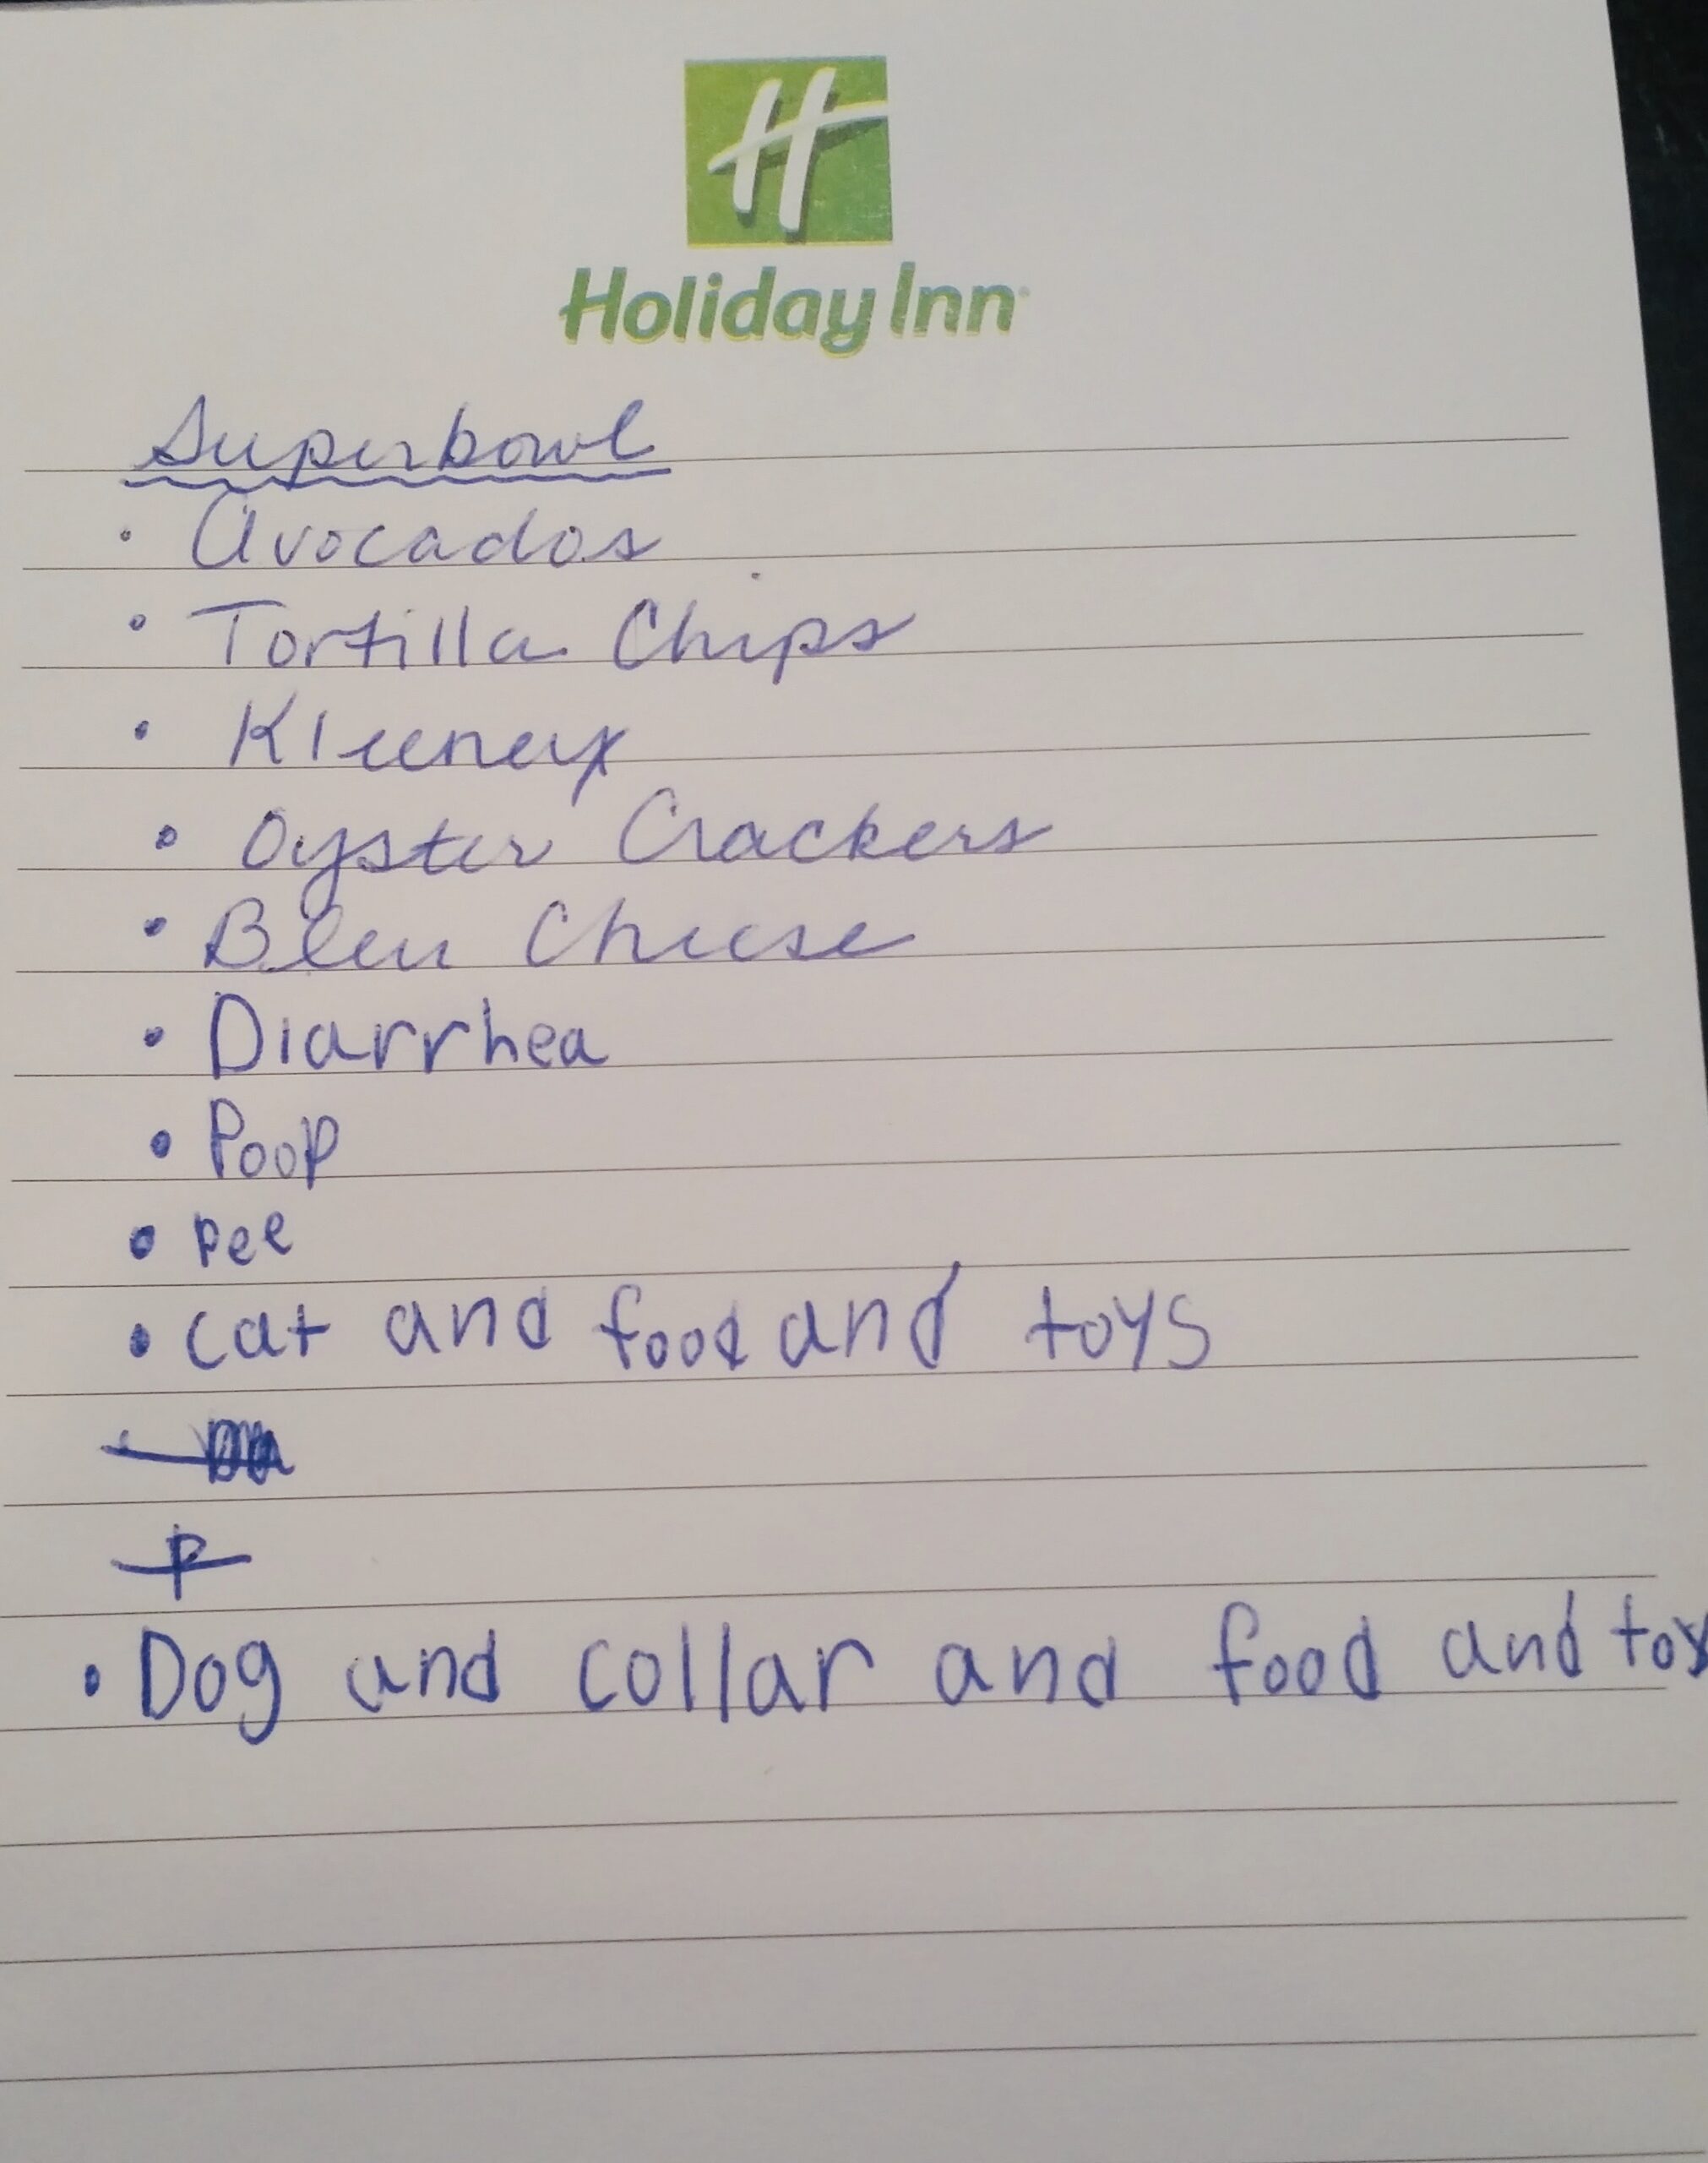 H
Holiday Inn
Superbowl
• Avocados
• Tortilla Chips
• Kleenex
• Oyster Crackers
• Bleu Cheese
• Diarrhea
• Poop
• Pee
• cat and food and toys
P
• Dog and collar and food and toy